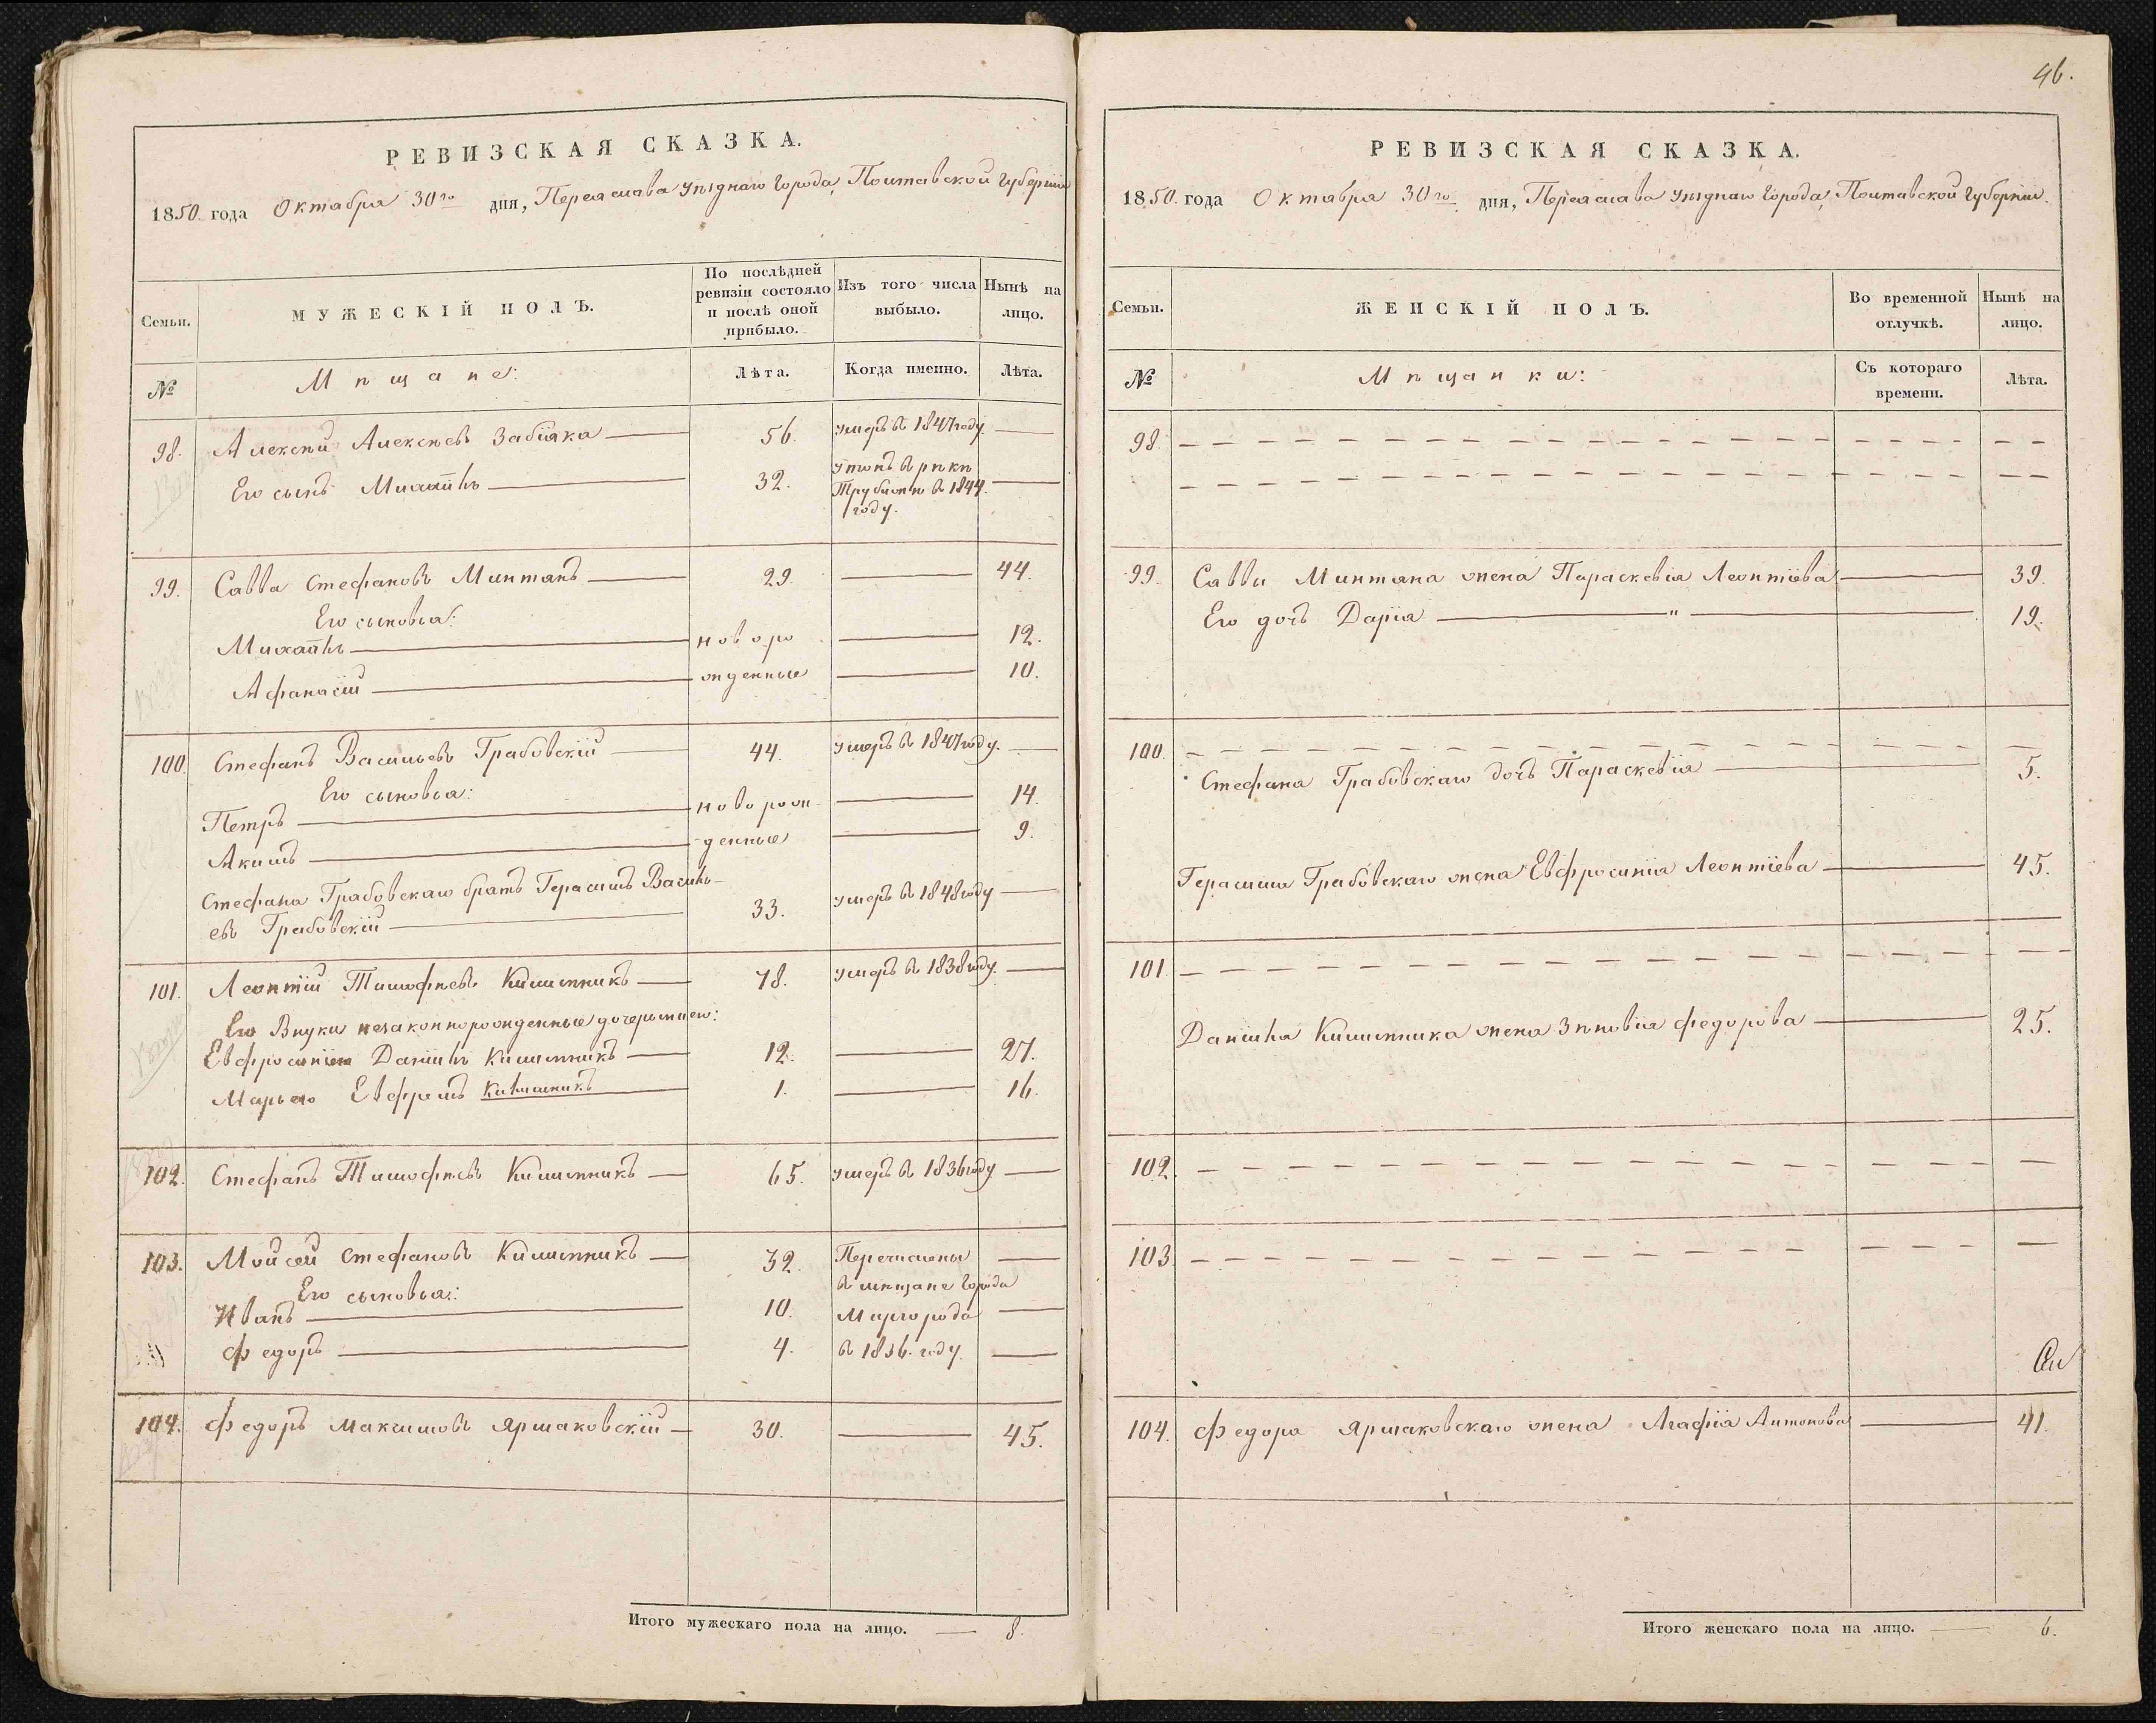 РЕВИЗСКАЯ СКАЗКА.
1850. года Октября 30го дня, Переяслава уѣзднаго города, Полтавской Губерніи
Семьи.
МУЖЕСКІЙ ПОЛЪ.
По послѣдней ревизіи состояло и послѣ оной прибыло.
Изъ того числа выбыло.
Нынѣ на лицо.
№
Мѣщане:
Лѣта.
Когда именно.
Лѣта.
98. Алексѣй Алексѣевъ Забіяка 56. умеръ въ 1847 году.
Его сынъ Михаилъ 32. утопъ въ рѣкѣ
Трубиожѣ въ 1844.
году.
99. Савва Стефановъ Миитянъ 29. 44.
Его сыновья:
Михаилъ новоро 12.
Афанасій жденные 10.
100. Стефанъ Васильевъ Грабовскій 44. умеръ въ 1847 году.
Его сыновья:
Петръ ново рож- 14.
Акимъ -денные 9.
Стефана Грабовскаго братъ Герасимъ Василь-
евъ Грабовскій 33. умеръ въ 1848 году
101. Леонтій Тимофѣевъ Кишинникъ 78. умеръ въ 1838 году.
Его Внуки незаконнорожденные дочерьми его:
Евфросиніею Даніилъ Кишинникъ 12. 27.
Марьею Евфремъ Кишинникъ 1. 16.
102. Стефанъ Тимофѣевъ Кишинникъ 65. умеръ въ 1836 году
103. Мойсей Стефановъ Кишинникъ 32. Перечислены
Его сыновья: въ мѣщане города
Иванъ 10. Миргорода
Федоръ 4. въ 1836. году.
104. Федоръ Максимовъ Ярмаковскій 30. 45.
Итого мужескаго пола на лицо. 8.
46.
РЕВИЗСКАЯ СКАЗКА.
1850. года Октября 30го. дня, Переяслава уѣзднаго города, Полтавской Губерніи.
Семьи.
ЖЕНСКІЙ ПОЛЪ.
Во временной отлучкѣ.
Нынѣ на лицо.
№
Мѣщанки:
Съ котораго времени.
Лѣта.
98.
99. Саввы Миитяна жена Параскевія Леонтіева 39.
Его дочь Дарія " 19.
100.
Стефана Грабовскаго дочь Параскевія 5.
Герасима Грабовскаго жена Евфросинія Леонтіева 45.
101.
Даніила Кишинника жена Зѣновія Федорова 25.
102.
103.
104. Федора Ярмаковскаго жена Агафія Антонова 41.
Итого женскаго пола на лицо. 6.